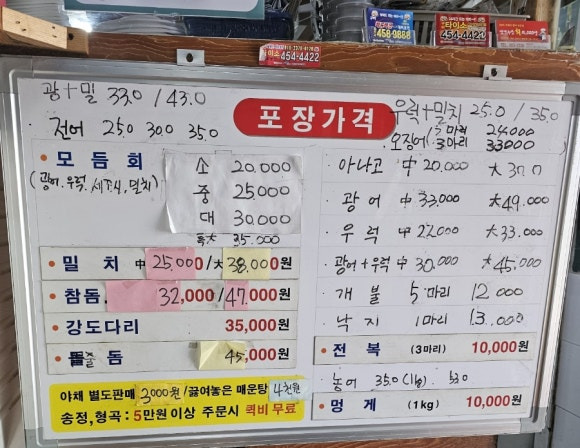 458-9888
타이소
454-4422
이소 454-4422
광+밀 33.0 / 43.0
전어 25.0 30.0 35.0
포장가격
우럭+밀치 25.0 / 35.0
오징어 (2마리 24,000
3마리 33,000
• 모듬회 소 20,000
(광어, 우럭, 밀치) 중 25,000
대 30,000
특大 35,000
• 밀치 中 25,000 / 大 38,000원
• 참돔 32,000 / 47,000원
• 강도다리 35,000원
• 돌돔 45,000원
야채 별도판매 3000원 / 끓여놓은 매운탕 4천원
송정, 형곡 : 5만원 이상 주문시 퀵비 무료
• 아나고 中 20,000 大 30.0
• 광어 中 33,000 大 49,000
• 우럭 中 22,000 大 33,000
• 광어+우럭 中 30,000 大 45,000
• 개불 5마리 12,000
• 낙지 1마리 13,000
• 전복 (3마리) 10,000원
• 농어 35.0 (1kg) 53.0
• 멍게 (1kg) 10,000원